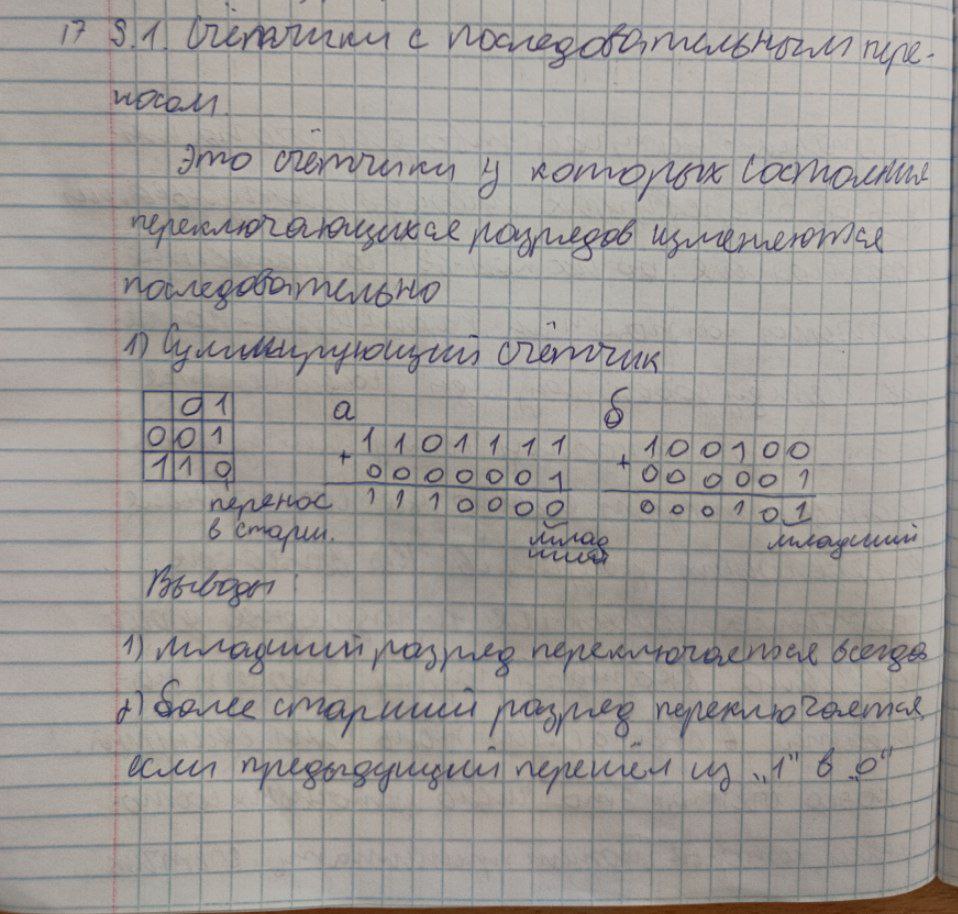 17 9.1. Счётчики с последовательным пере-
носом.
Это счётчики у которых состояния
переключающихся разрядов изменяются
последовательно
1) Суммирующий счётчик
0 1 а б
0 0 1 1 1 0 1 1 1 1 1 0 0 1 0 0
1 1 0 + 0 0 0 0 0 0 1 + 0 0 0 0 0 1
перенос 1 1 1 0 0 0 0 0 0 0 1 0 1
в старш. млад ший младший
Выводы:
1) младший разряд переключается всегда
2) более старший разряд переключается,
если предыдущий перешёл из „1“ в „0“